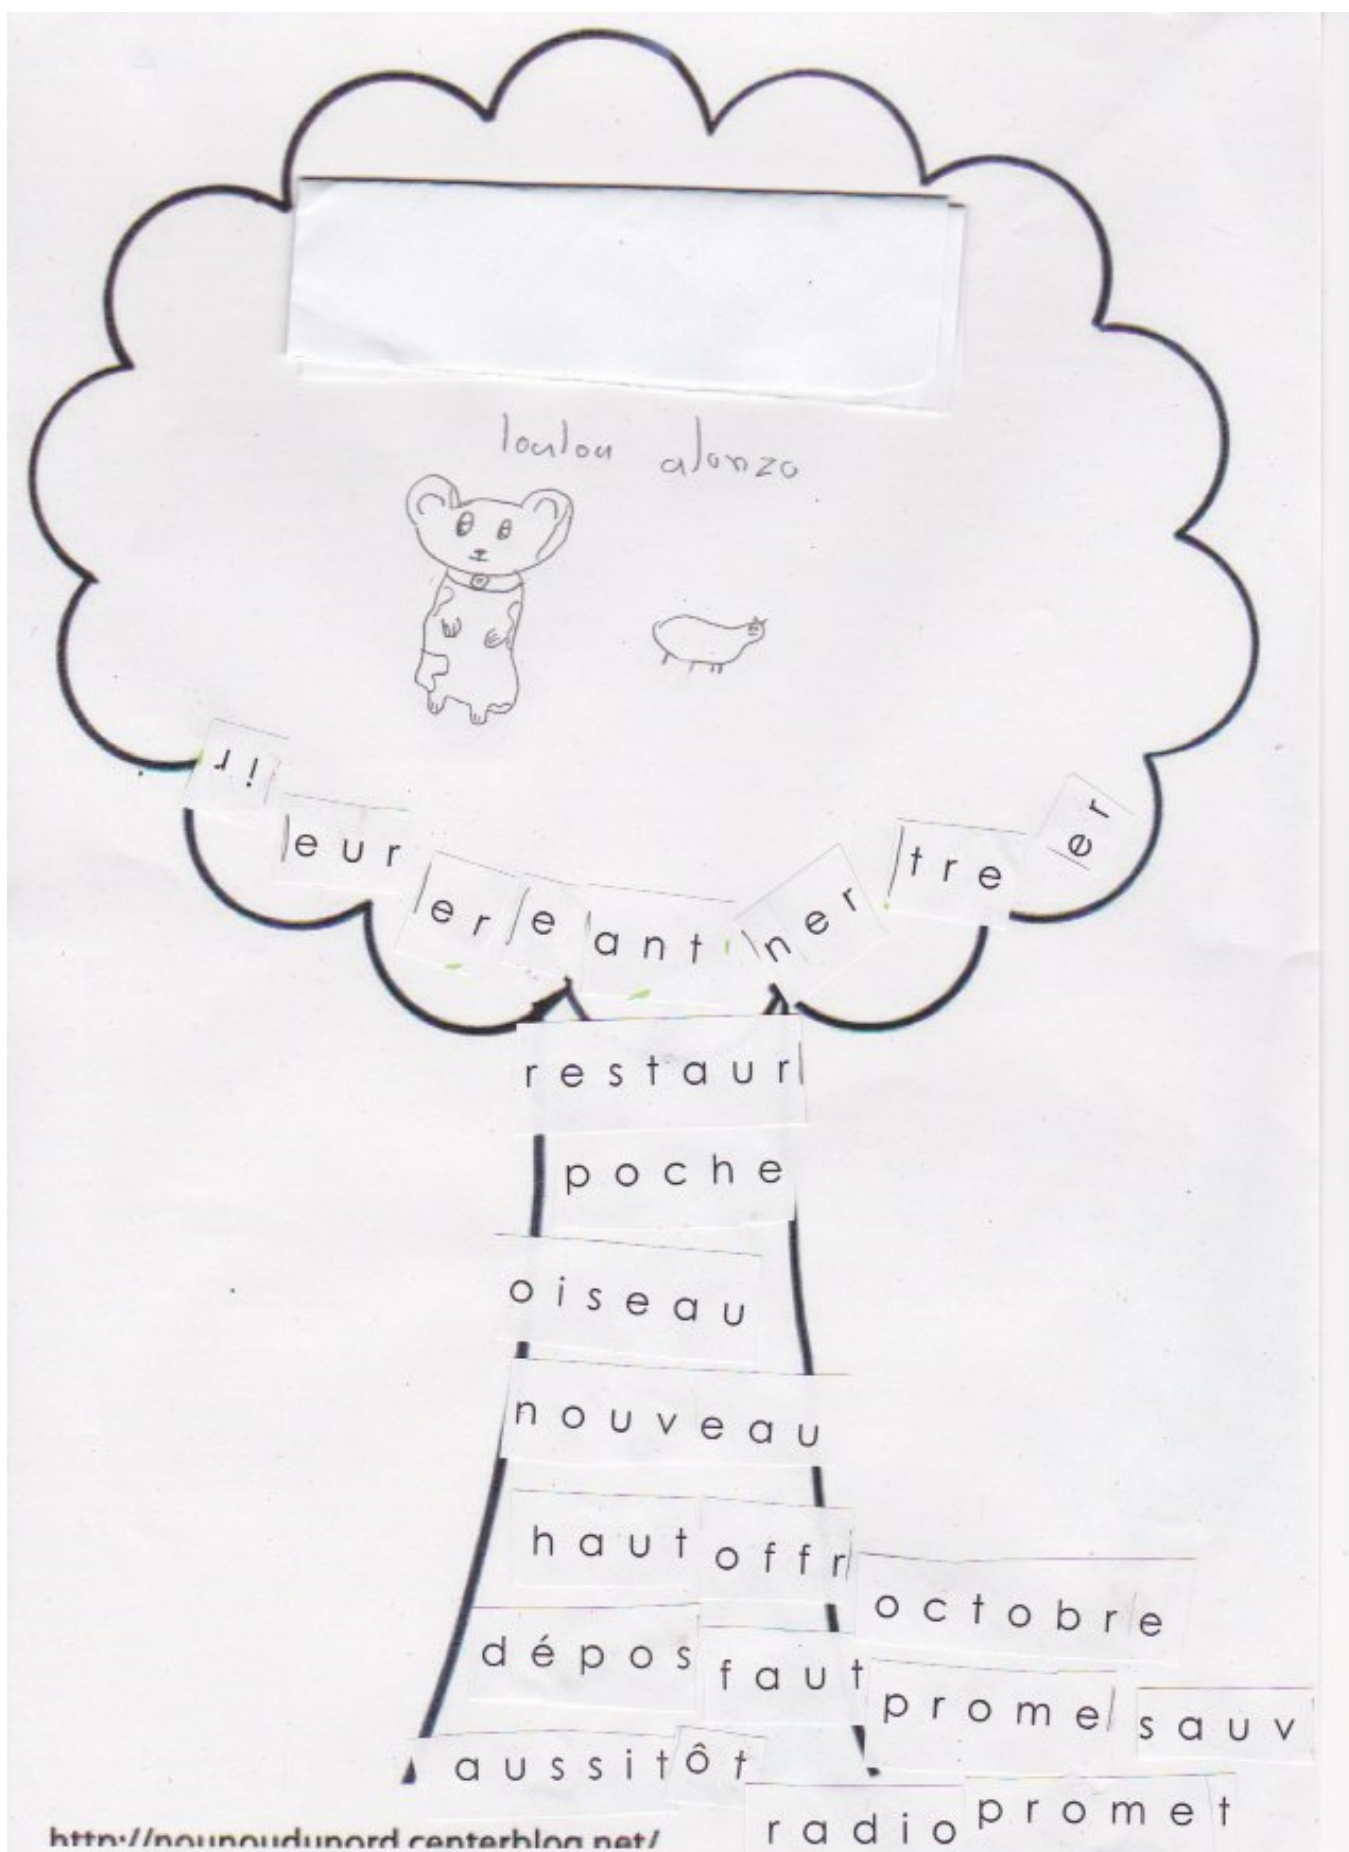 loulou alonzo
ir
eur
er
e
ant
ner
tre
er
restaur
poche
oiseau
nouveau
haut offr
octobre
dépos faut
prome sauv
aussitôt
radio promet
http://nounoudunord.centerblog.net/